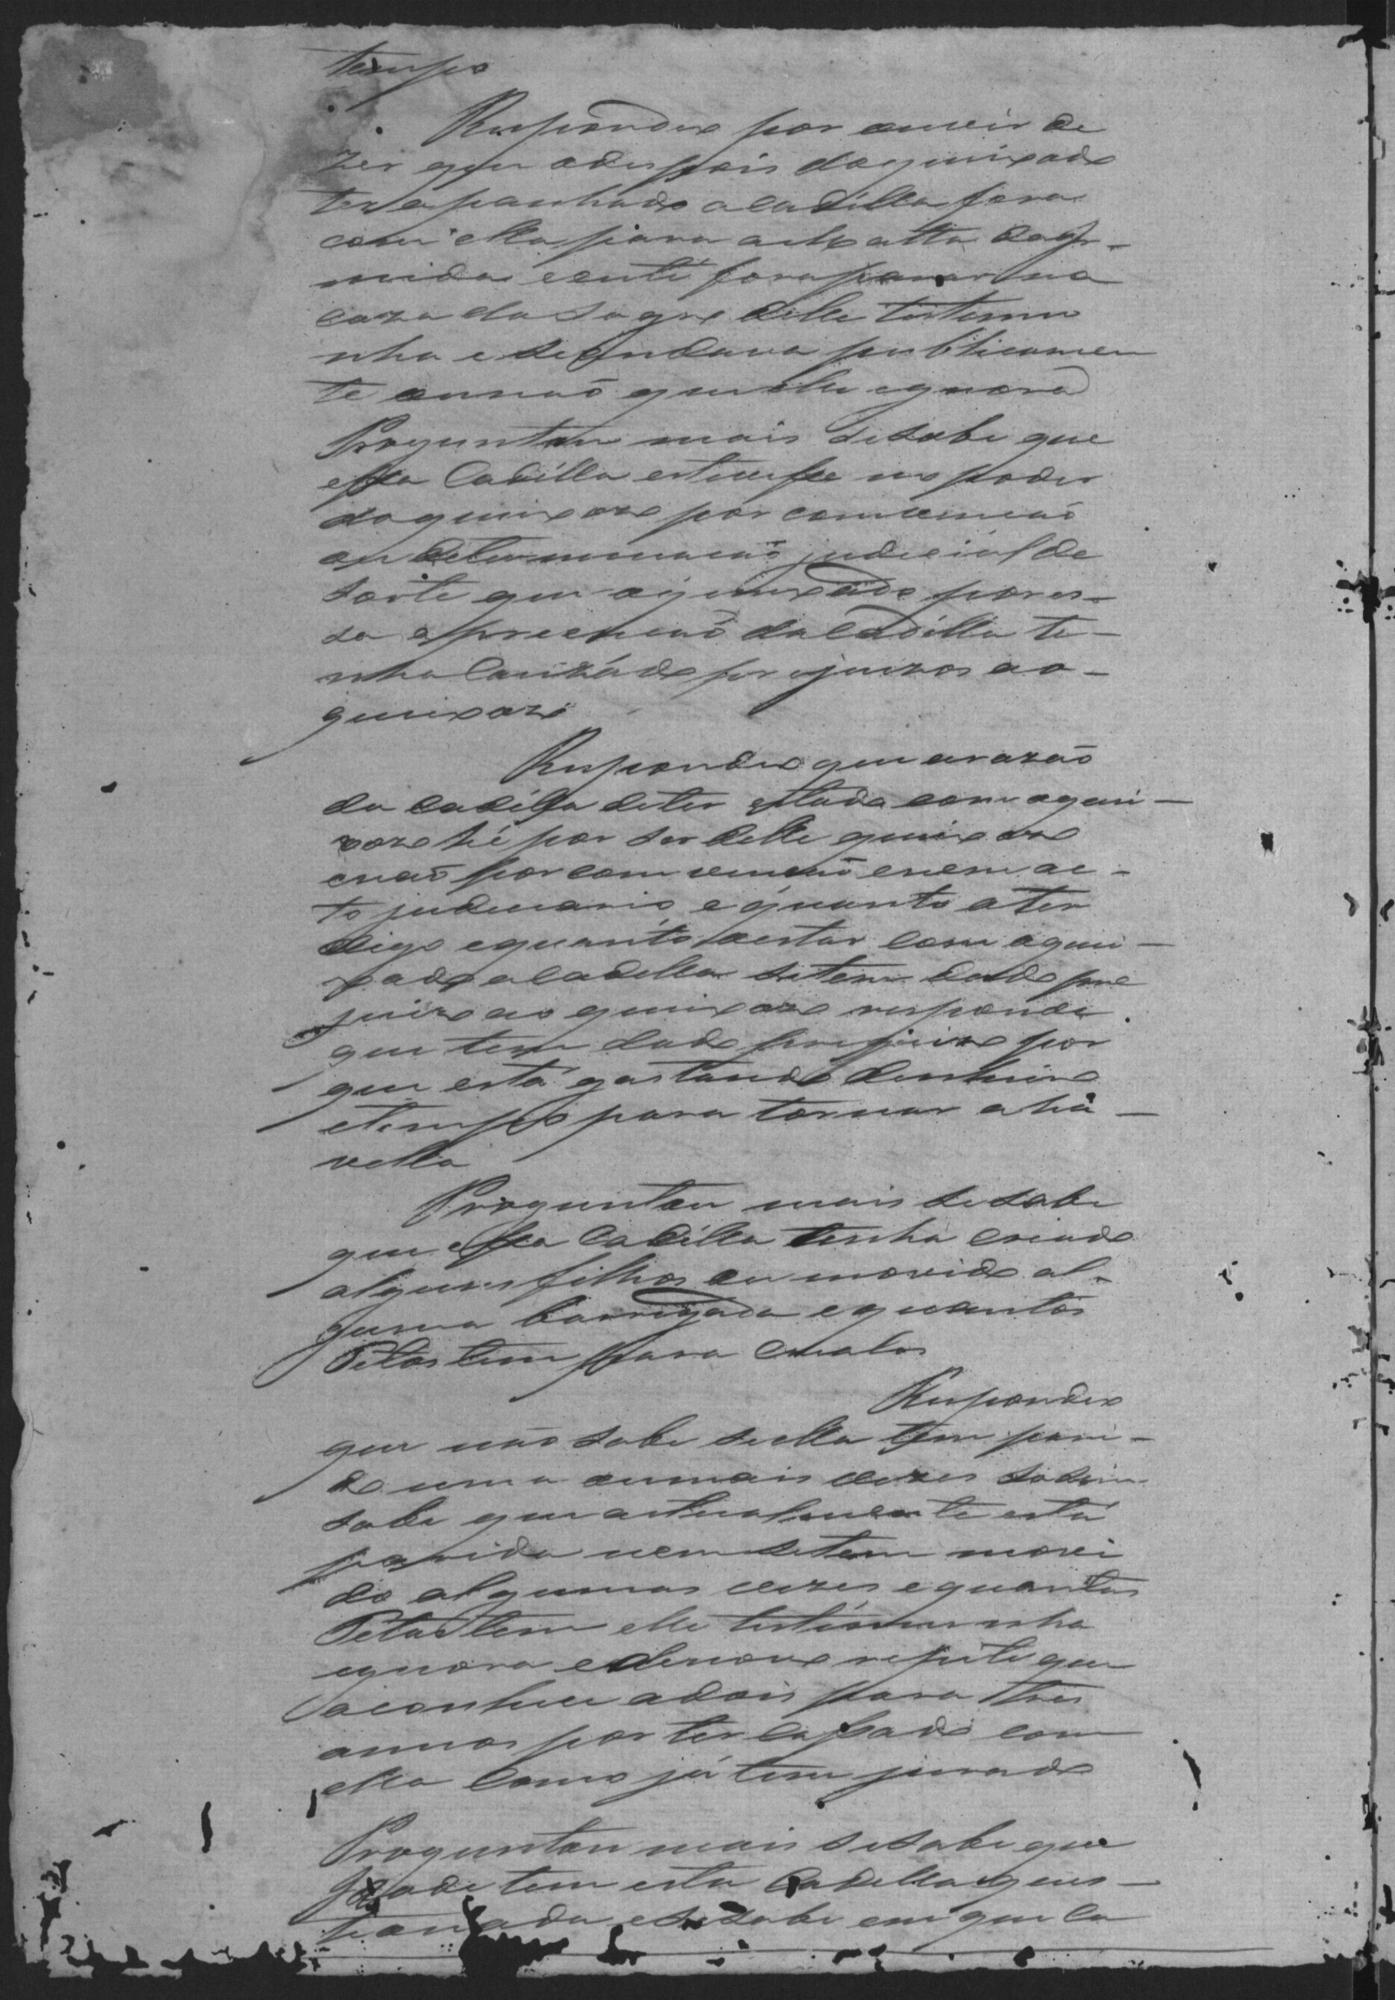 tempo
Respondeo por ouvir di
zer que odespois doquixado
ter apanhado a cadella fora
com ella para a
e ente fora parar na
caza do Sogro delle testemu
nha e se andava publicamen
te ounaõ que elle ignora
Proguntou mais se sabe que
essa Cadella estivesse no poder
doquixoze por comvencaõ
ou determinacaõ judicial de
sorte que oquixado por es
sa aprecencaõ dacadella te-
nha Cauzado prejuizos ao-
quixoze
Respondeo que a razaõ
da cadella deter estado com oqui-
xoze hé por ser delle quixoze
enaõ por comvencaõ enem ac-
to judiciario e quanto ater
digo equanto aestar com oqui-
xado acadella se tem dado pre
juizo ao quixoze responde
que tem dado prejuizo por
que está gastando dinheiro
etempo para tornar aha-
vella
Proguntou mais se sabe
que essa Cadella tenha criado
alguns filhos ou movido al-
guma barrigada equantos
Petos tem para crialos
Respondeo
que não sabe se ella tem pari-
do uma oumais vezes só sim
sabe que actualmente está
parida nem se tem movi
do algumas vezes equantas
Petas tem elle testemunha
ignora edenovo repite que
aconhece adois para tres
annos por ter cassado com
ella como já tem jurado
Proguntou mais se sabe que
idade tem esta Cadella ques-
tionada ese sabe em que ca